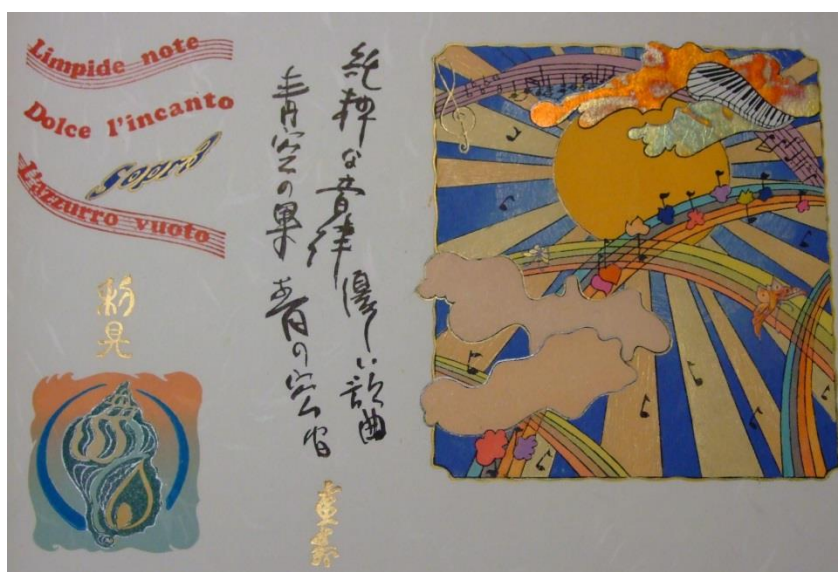 Limpide note
Dolce l'incanto
Sopra
L'azzurro vuoto
純粋な音律優しい歌曲
青空の果 青の